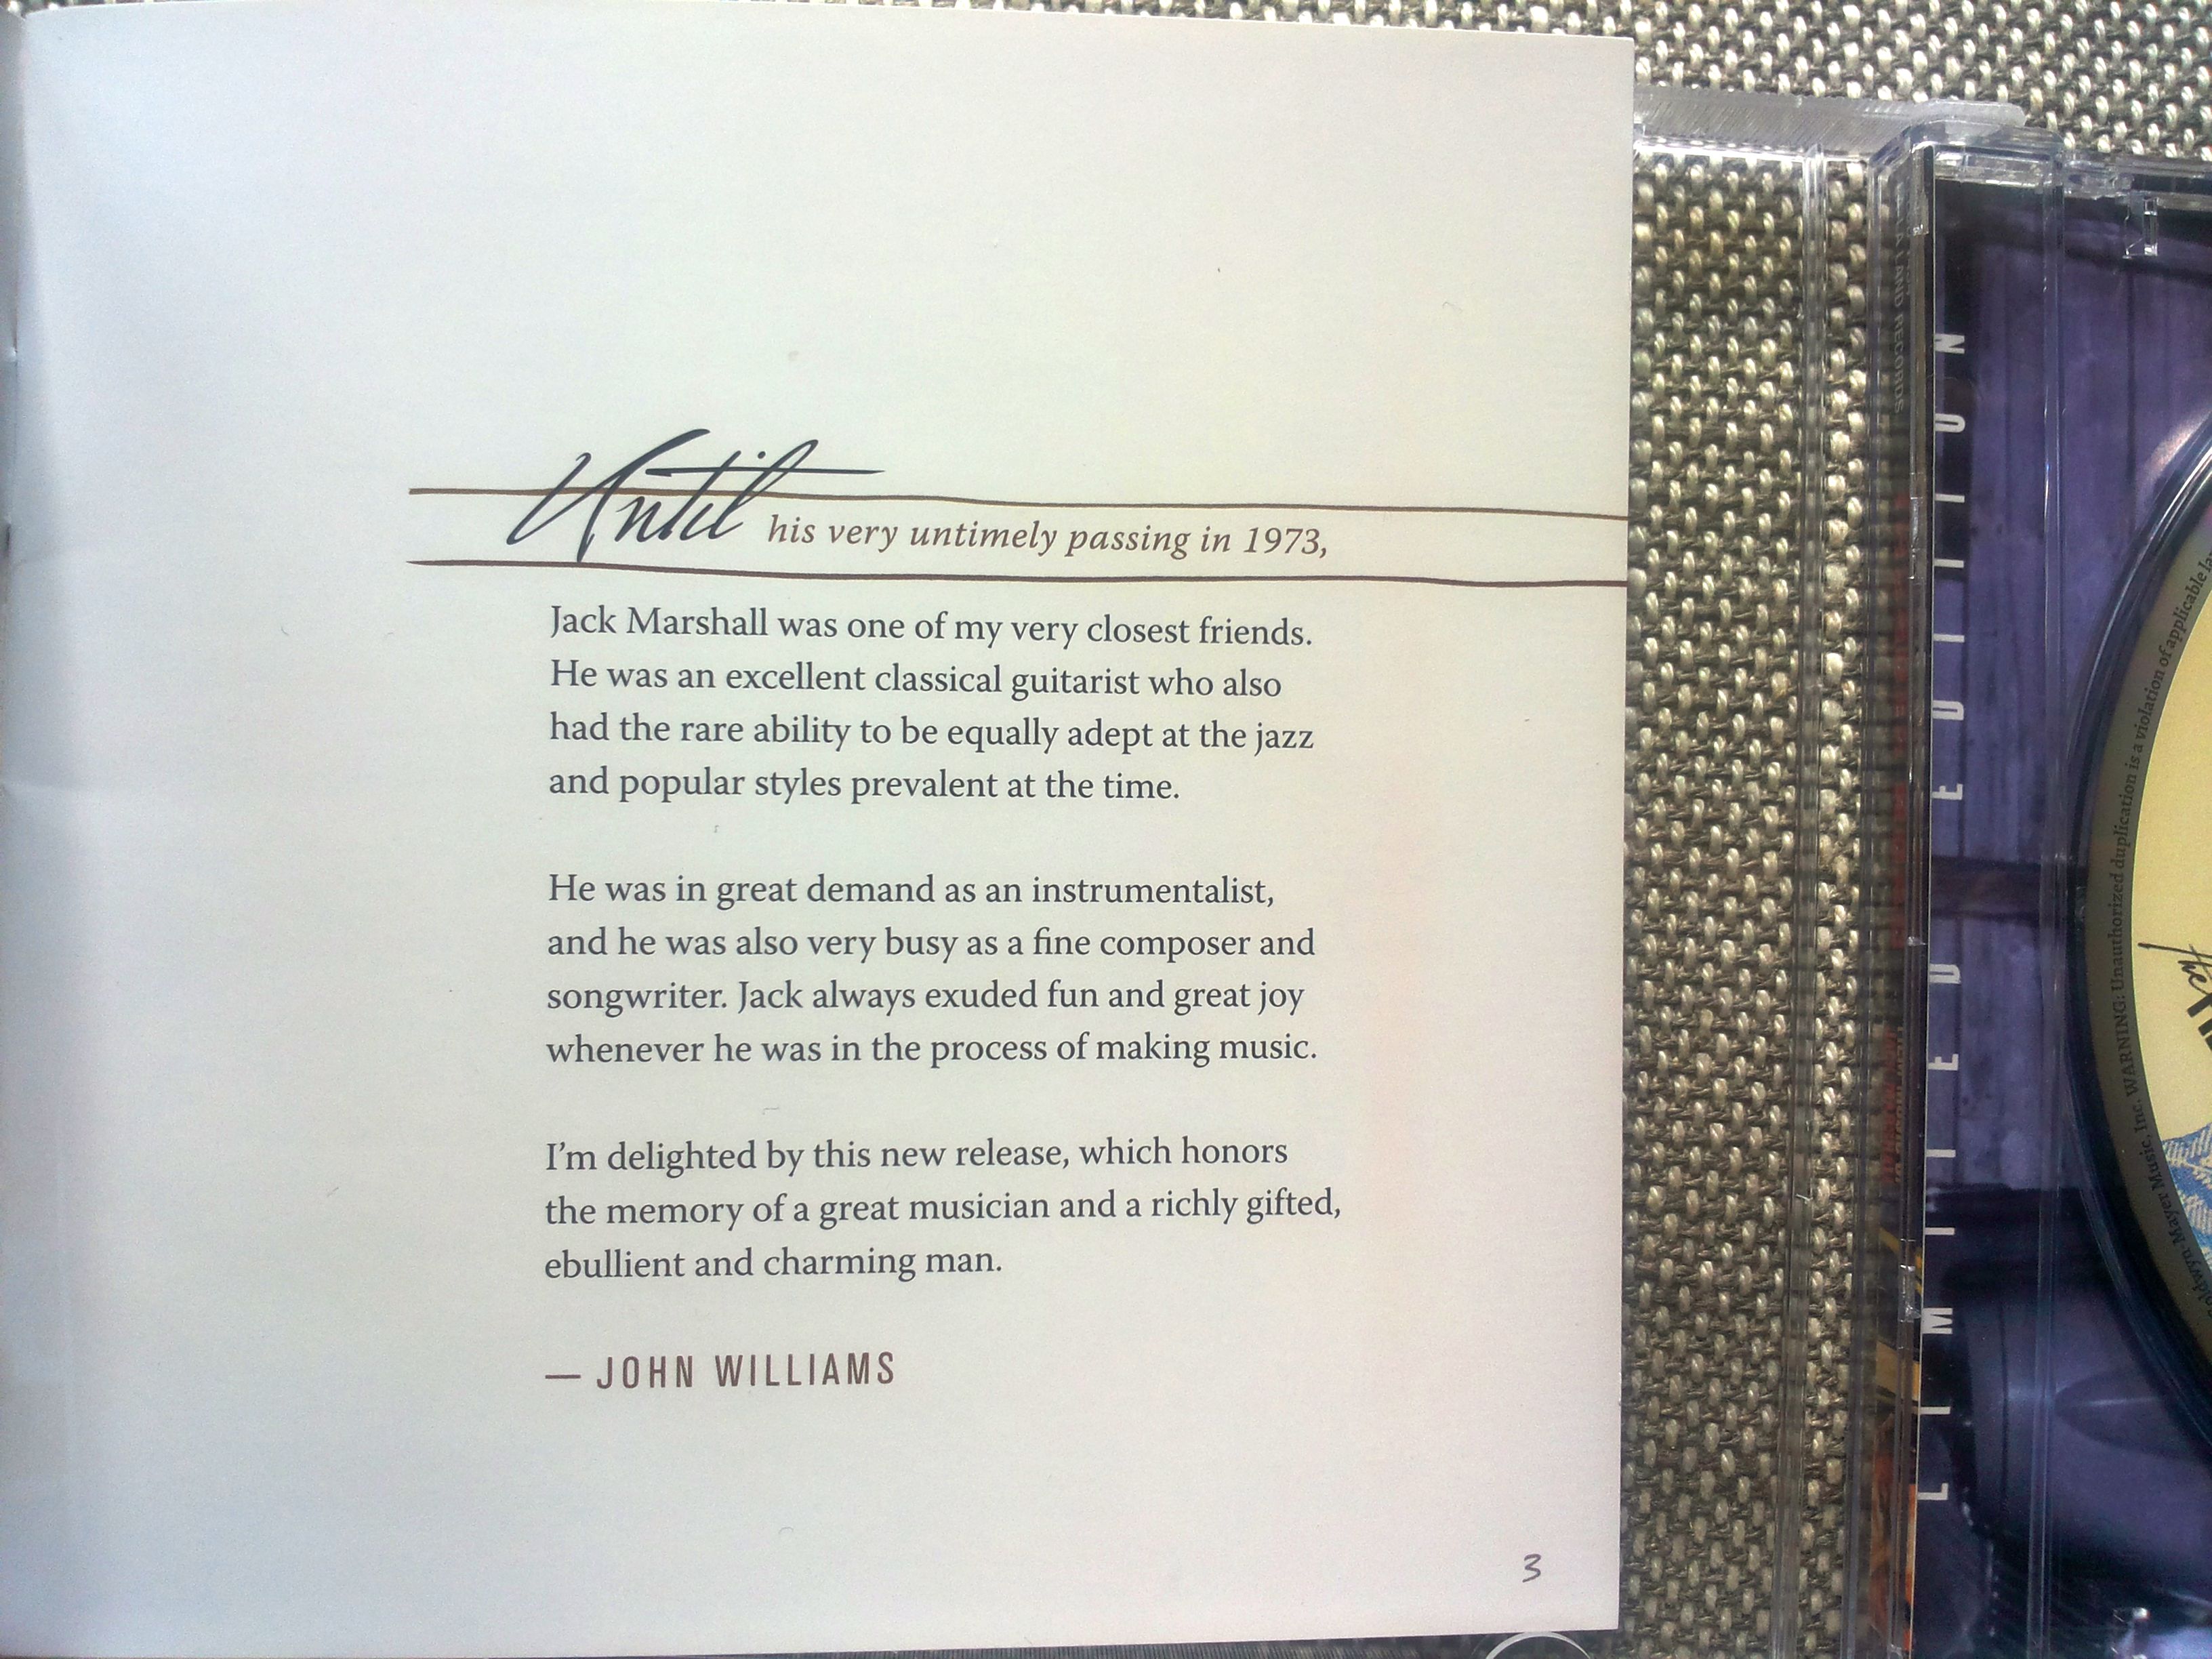 Until his very untimely passing in 1973,
Jack Marshall was one of my very closest friends.
He was an excellent classical guitarist who also
had the rare ability to be equally adept at the jazz
and popular styles prevalent at the time.
He was in great demand as an instrumentalist,
and he was also very busy as a fine composer and
songwriter. Jack always exuded fun and great joy
whenever he was in the process of making music.
I'm delighted by this new release, which honors
the memory of a great musician and a richly gifted,
ebullient and charming man.
— JOHN WILLIAMS
3
LIMITED EDITION
Mayer Music, Inc. WARNING: Unauthorized duplication is a violation of applicable
the